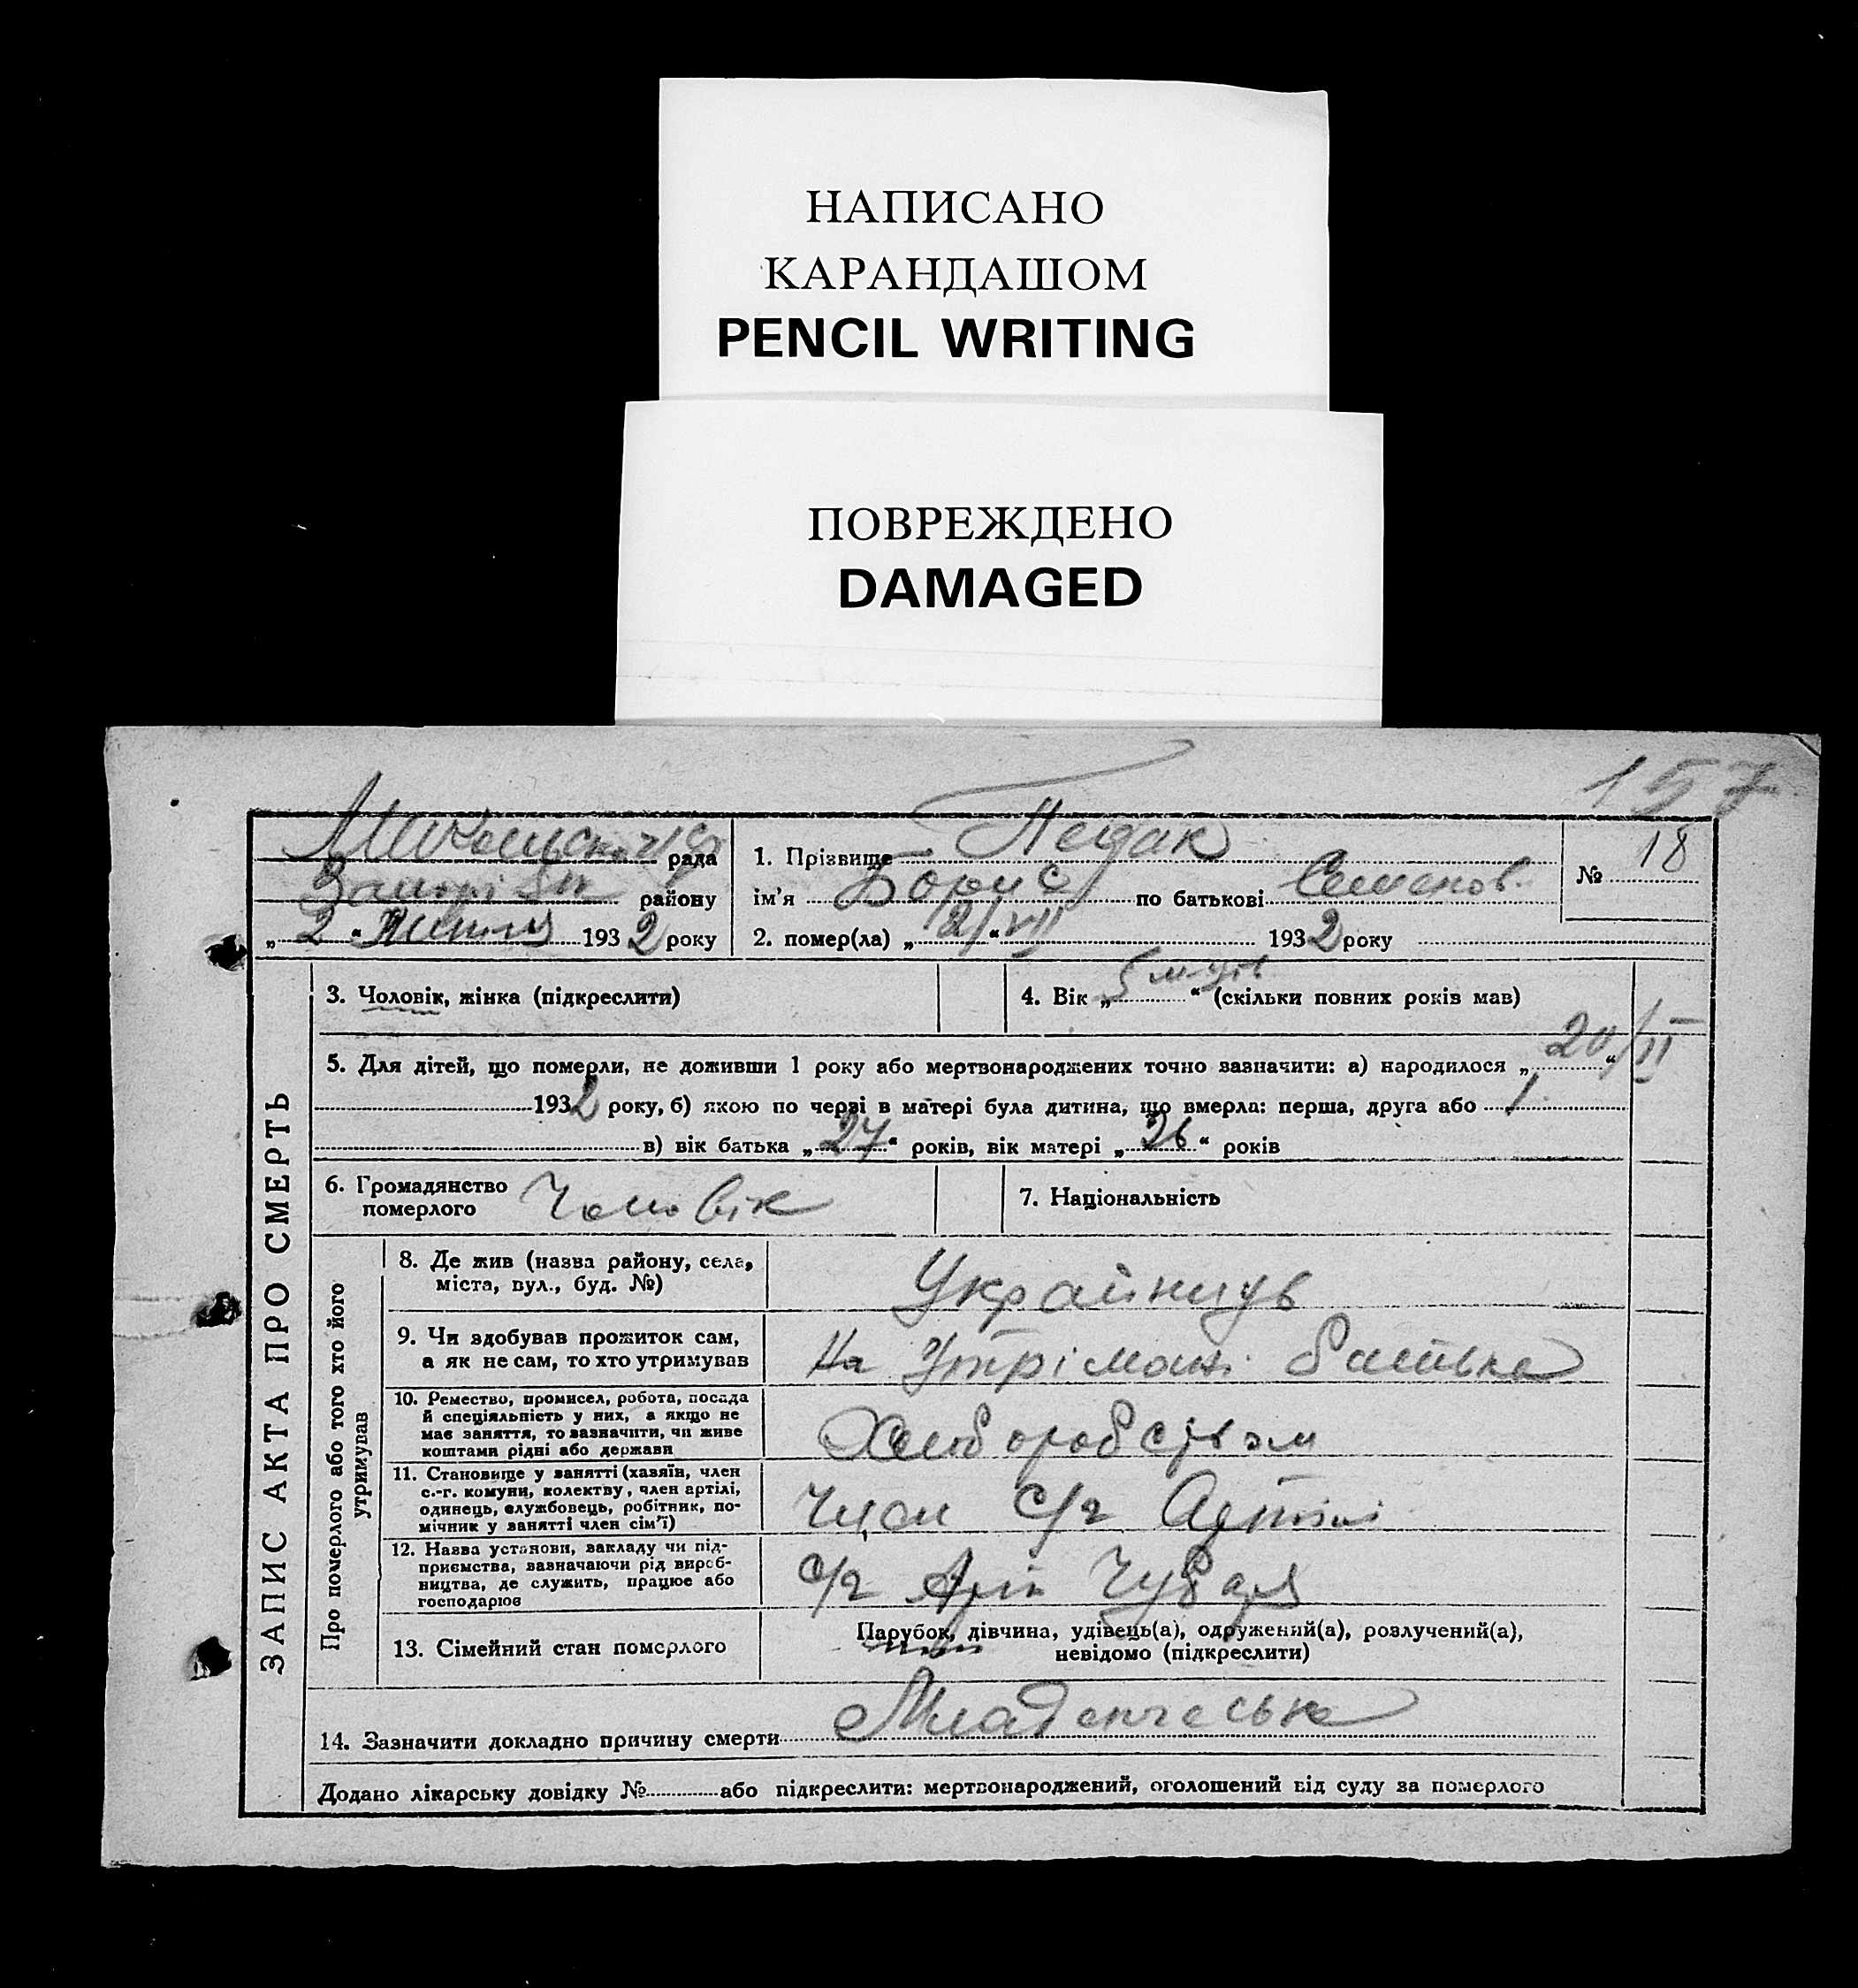 НАПИСАНО
КАРАНДАШОМ
PENCIL WRITING
ПОВРЕЖДЕНО
DAMAGED
157
рада
району
„ 2 “ Липня 1932 року
1. Прізвище Педак
ім'я Борис по батькові Семенов.
2. помер(ла) „ 2/VII “ 1932 року
№ 18
ЗАПИС АКТА ПРО СМЕРТЬ
3. Чоловік, жінка (підкреслити)
4. Вік „ 5 м-ців “ (скільки повних років мав)
5. Для дітей, що померли, не доживши 1 року або мертвонароджених точно зазначити: а) народилося „ 20/II “
1932 року, б) якою по черзі в матері була дитина, що вмерла: перша, друга або 1
в) вік батька „ 27 “ років, вік матері „ 26 “ років
6. Громадянство
померлого Чоловік
7. Національність
Про померлого або того хто його
утримував
8. Де жив (назва району, села,
міста, вул., буд. №)
9. Чи здобував прожиток сам,
а як не сам, то хто утримував
На Утрімані батька
10. Ремество, промисел, робота, посада
й спеціяльність у них, а якщо не
має заняття, то зазначити, чи живе
коштами рідні або держави
11. Становище у занятті (хазяїн, член
с.-г. комуни, колективу, член артілі,
одинець, службовець, робітник, по-
мічник у занятті член сім'ї)
Член с/г Артілі
12. Назва установи, закладу чи під-
приємства, зазначаючи рід вироб-
ництва, де служить, працює або
господарює
с/г Арт Чубаря
13. Сімейний стан померлого
Парубок, дівчина, удівець(а), одружений(а), розлучений(а),
невідомо (підкреслити)
14. Зазначити докладно причину смерти Младенческа
Додано лікарську довідку № або підкреслити: мертвонароджений, оголошений від суду за померлого